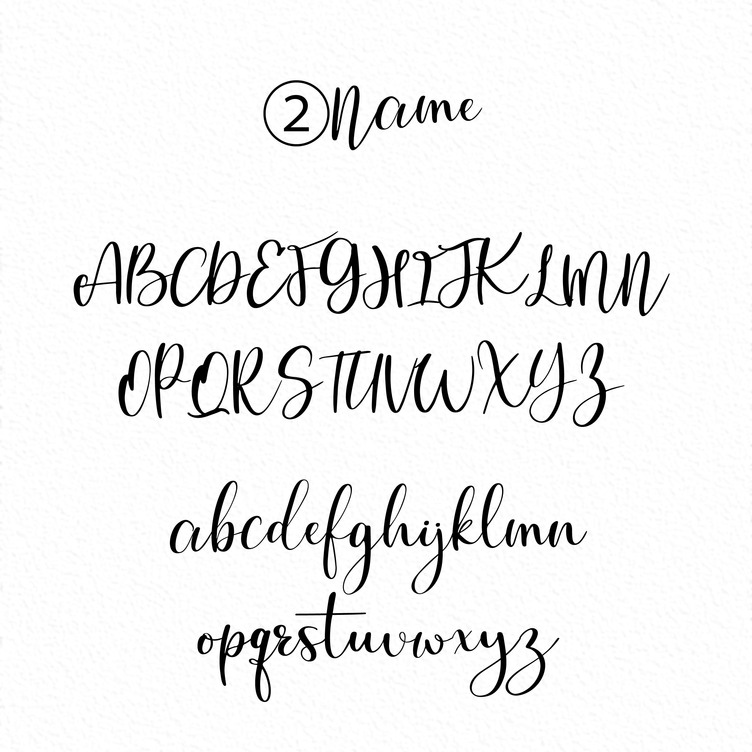 ②Name
ABCDEFGHIJKLMN
OPQRSTUVWXYZ
abcdefghijklmn
opqrstuvwxyz